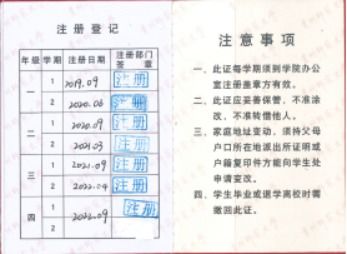 注册登记
年级 学期 注册日期 注册部门签章
一 1 2019.09 注册
2 2020.06 注册
二 1 2020.09 注册
2 2021.03 注册
三 1 2021.09 注册
2 2022.04 注册
四 1 2022.09 注册
2
注意事项
一、此证每学期须到学院办公
室注册盖章方有效。
二、此证应妥善保管，不准涂
改，不准转借他人。
三、家庭地址变动，须持父母
户口所在地派出所证明或
户籍复印件方能向学生处
申请变改。
四、学生毕业或退学离校时需
缴回此证。